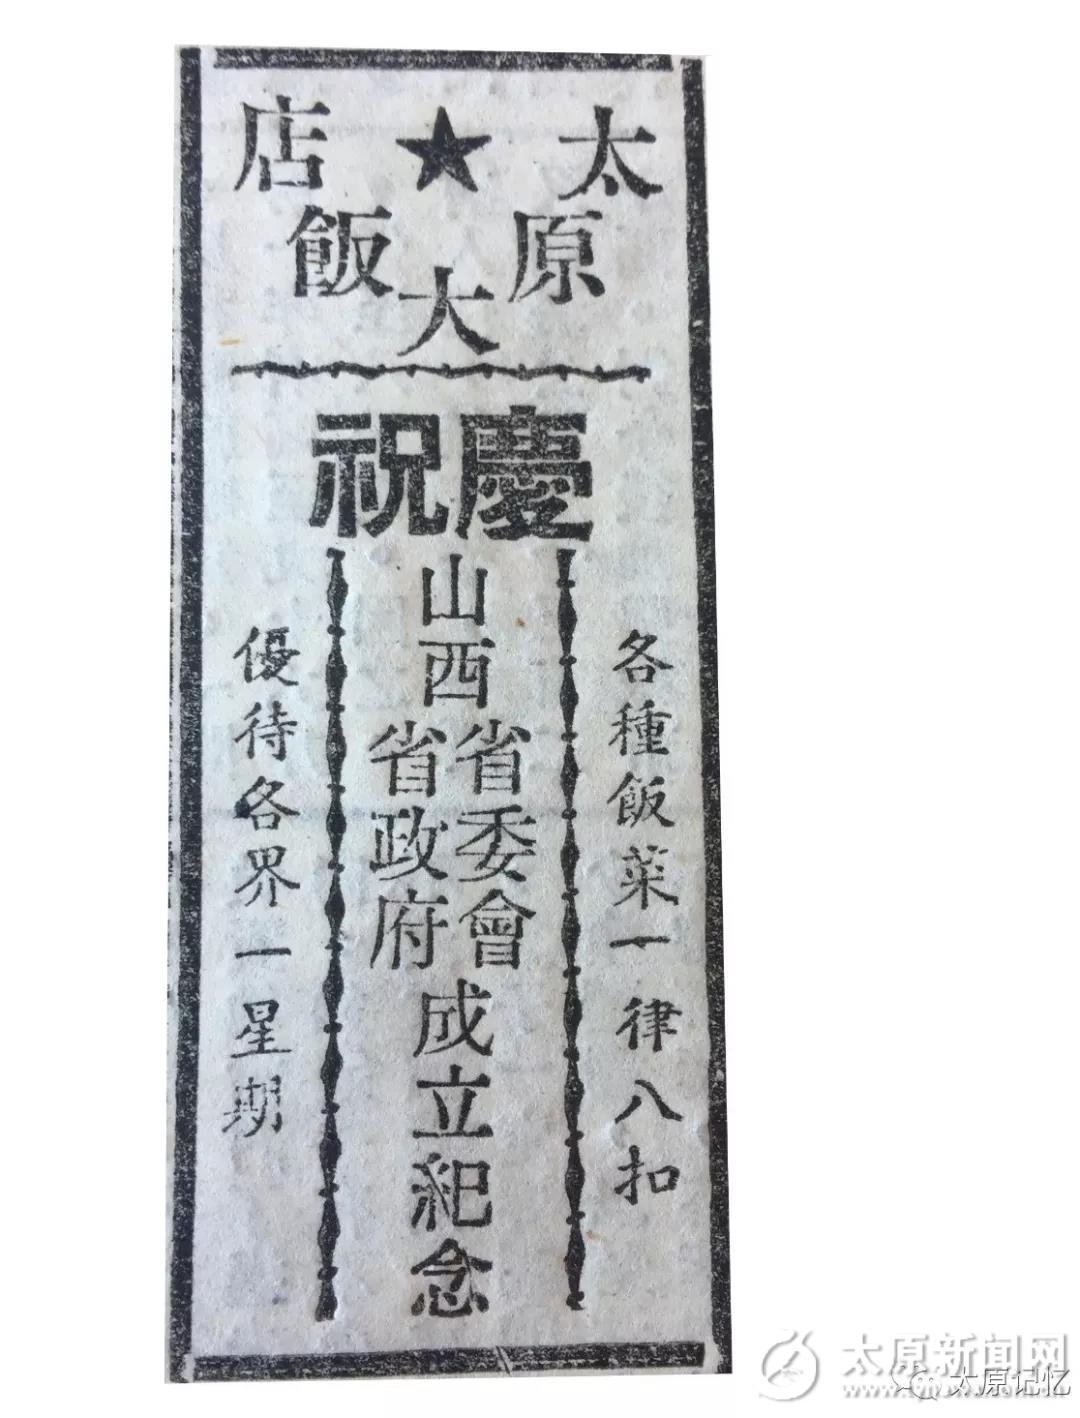 太原大飯店
慶祝
各種飯菜一律八扣
山西
省委會
省政府
成立紀念
優待各界一星期
太原新闻网
太原记忆